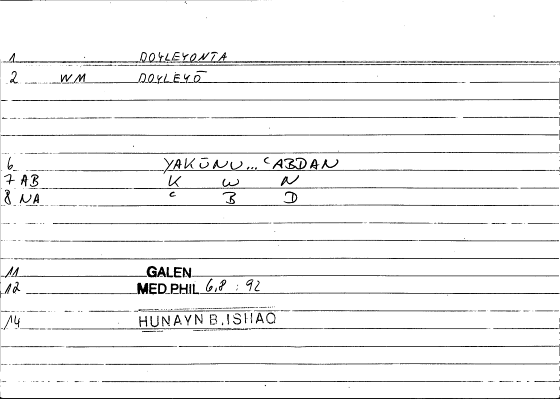 1 DOYLEYONTA
2 WM DOYLEYŌ
6 YAKŪNU... ʿABDAN
7 AB K W N
8 NA ʿ B D
11 GALEN
12 MED.PHIL 6,8 : 92
14 HUNAYN B.ISHAQ